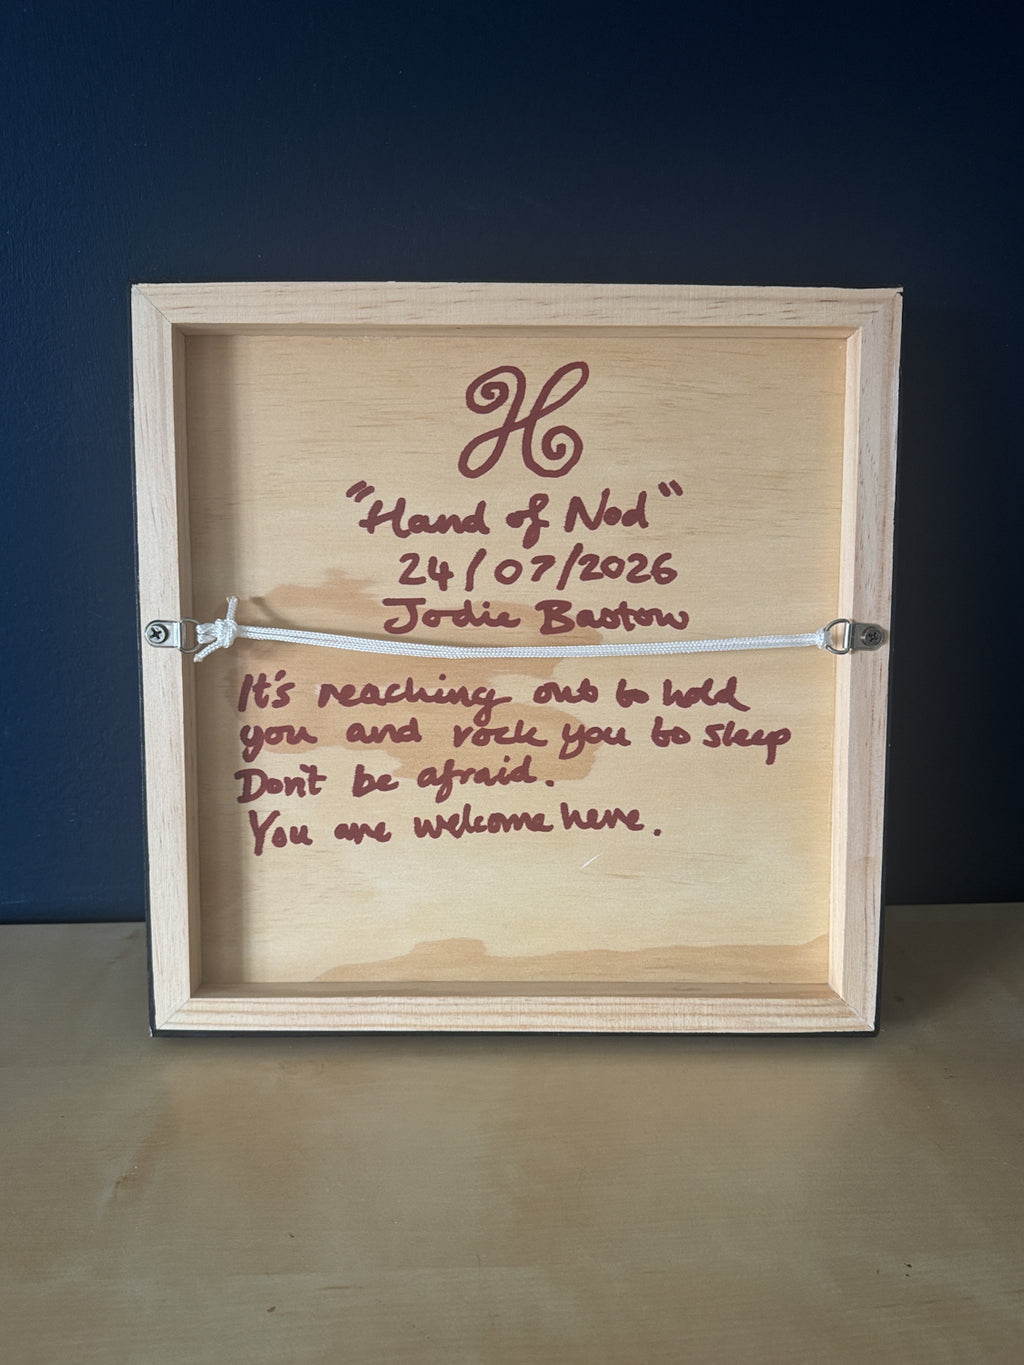 H
"Hand of Nod"
24/07/2026
Jodie Bastow
It's reaching out to hold
you and rock you to sleep
Don't be afraid.
You are welcome here.